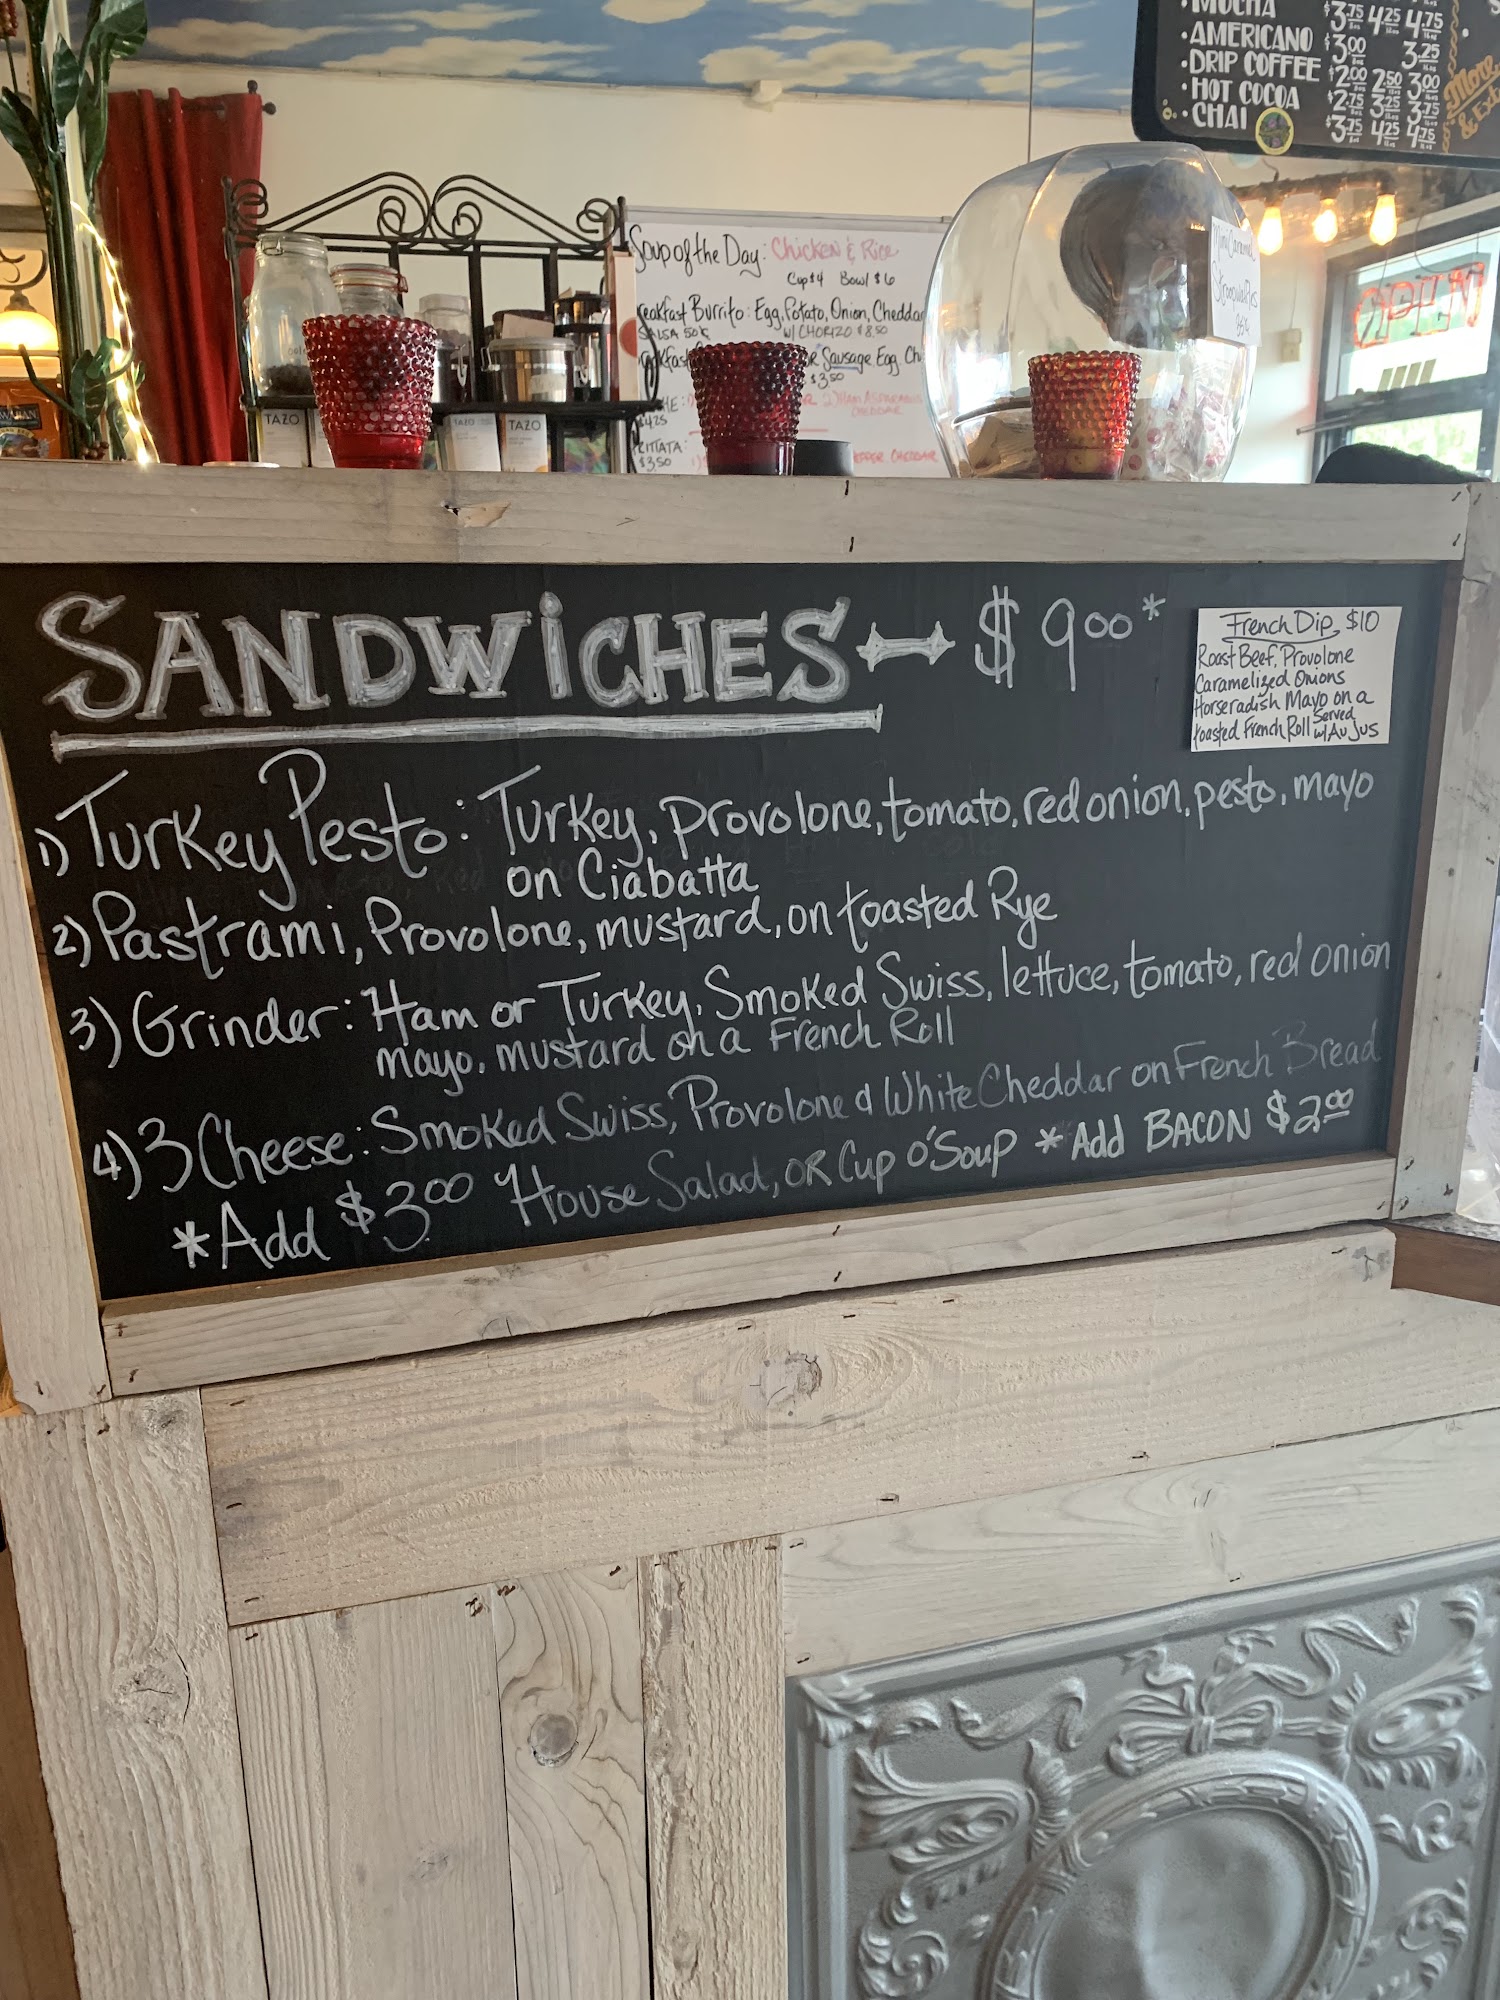 MOCHA $3.75 4.25 4.75
• AMERICANO $3.00 3.25
• DRIP COFFEE $2.00 2.50 3.00
• HOT COCOA $2.75 3.25 3.75
• CHAI $3.75 4.25 4.75
More
&
Soup of the Day: Chicken & Rice
Cup $4 Bowl $6
Burrito: Egg, Potato, Onion,
SALSA 50¢ w/ CHORIZO $8.50
Sausage Egg
$3.50
2) HAM ASPARAGUS
$4.25 CHEDDAR
$3.50 CHEDDAR
Mini Caramel
TAZO
TAZO
TAZO
OPEN
SANDWiCHES $9.00*
French Dip $10
Roast Beef, Provolone
Caramelized Onions
Horseradish Mayo on a
toasted French Roll Served
w/ Au Jus
1) Turkey Pesto: Turkey, Provolone, tomato, red onion, pesto, mayo
on Ciabatta
2) Pastrami, Provolone, mustard, on toasted Rye
3) Grinder: Ham or Turkey, Smoked Swiss, lettuce, tomato, red onion
mayo, mustard on a French Roll
4) 3 Cheese: Smoked Swiss, Provolone & White Cheddar on French Bread
*Add $3.00 House Salad, OR Cup o' Soup *Add BACON $2.00